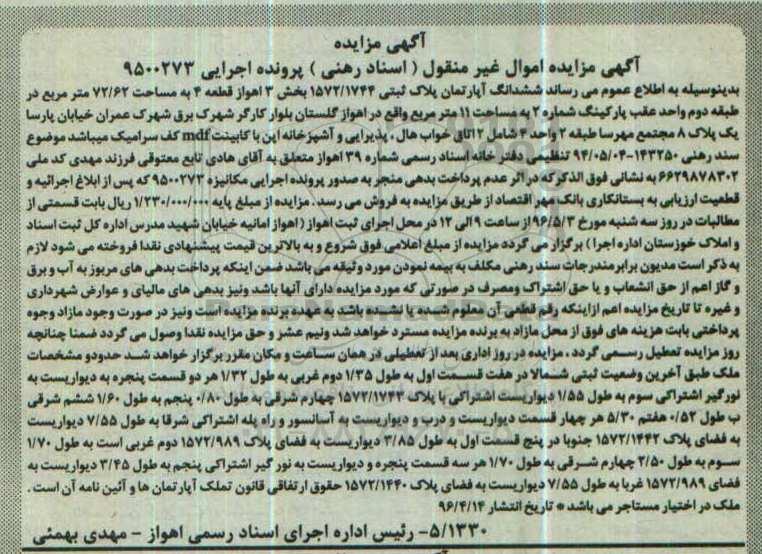 آگهی مزایده
آگهی مزایده اموال غیر منقول ( اسناد رهنی ) پرونده اجرایی ۹۵۰۰۲۷۳
بدینوسیله به اطلاع عموم می رساند ششدانگ آپارتمان پلاک ثبتی ۱۵۷۲/۱۷۴۴ بخش ۳ اهواز قطعه ۴ به مساحت ۷۲/۶۲ متر مربع در
طبقه دوم واحد عقب پارکینگ شماره ۲ به مساحت ۱۱ متر مربع واقع در اهواز گلستان بلوار کارگر شهرک برق شهرک عمران خیابان پارسا
یک پلاک ۸ مجتمع مهرسا طبقه ۲ واحد ۴ شامل ۲ اتاق خواب هال ، پذیرایی و آشپزخانه این با کابینت mdf کف سرامیک میباشد موضوع
سند رهنی ۱۴۳۲۵۰-۹۴/۰۵/۰۴ تنظیمی دفتر خانه اسناد رسمی شماره ۳۹ اهواز متعلق به آقای هادی تابع معتوقی فرزند مهدی کد ملی
۶۶۲۹۸۷۸۳۰۲ به نشانی فوق الذکر که در اثر عدم پرداخت بدهی منجر به صدور پرونده اجرایی مکانیزه ۹۵۰۰۲۷۳ که پس از ابلاغ اجرائیه و
قطعیت ارزیابی به بستانکاری بانک مهر اقتصاد از طریق مزایده به فروش می رسد . مزایده از مبلغ پایه ۱/۲۳۰/۰۰۰/۰۰۰ ریال بابت قسمتی از
مطالبات در روز سه شنبه مورخ ۹۶/۵/۳ از ساعت ۹ الی ۱۲ در محل اجرای ثبت اهواز ( اهواز امانیه خیابان شهید مدرس اداره کل ثبت اسناد
و املاک خوزستان اداره اجرا ) برگزار می گردد مزایده از مبلغ اعلامی فوق شروع و به بالاترین قیمت پیشنهادی نقدا فروخته می شود لازم
به ذکر است مدیون برابر مندرجات سند رهنی مکلف به بیمه نمودن مورد وثیقه می باشد ضمن اینکه پرداخت بدهی های مربوز به آب و برق
و گاز اعم از حق انشعاب و یا حق اشتراک ومصرف در صورتی که مورد مزایده دارای آنها باشد ونیز بدهی های مالیاتی و عوارض شهرداری
و غیره تا تاریخ مزایده اعم ازاینکه رقم قطعی آن معلوم شده یا نشده باشد به عهده برنده مزایده است ونیز در صورت وجود مازاد وجوه
پرداختی بابت هزینه های فوق از محل مازاد به برنده مزایده مسترد خواهد شد ونیم عشر و حق مزایده نقدا وصول می گردد ضمنا چنانچه
روز مزایده تعطیل رسمی گردد ، مزایده در روز اداری بعد از تعطیلی در همان ساعت و مکان مقرر برگزار خواهد شد حدودو مشخصات
ملک طبق آخرین وضعیت ثبتی شمالا در هفت قسمت اول به طول ۱/۳۵ دوم غربی به طول ۱/۳۲ هر دو قسمت پنجره به دیواریست به
نورگیر اشتراکی سوم به طول ۱/۵۵ دیواریست اشتراکی با پلاک ۱۵۷۲/۱۷۴۳ چهارم شرقی به طول ۰/۸۰ پنجم به طول ۱/۶۰ ششم شرقی
ب طول ۰/۵۲ هفتم ۵/۳۰ هر چهار قسمت دیواریست و درب و دیواریست به آسانسور و راه پله اشتراکی شرقا به طول ۷/۵۵ دیواریست
به فضای پلاک ۱۵۷۲/۱۴۴۲ جنوبا در پنج قسمت اول به طول ۳/۸۵ دیواریست به فضای پلاک ۱۵۷۲/۹۸۹ دوم غربی است به طول ۱/۷۰
سوم به طول ۲/۵۰ چهارم شرقی به طول ۱/۷۰ هر سه قسمت پنجره و دیواریست به نور گیر اشتراکی پنجم به طول ۳/۴۵ دیواریست به
فضای ۱۵۷۲/۹۸۹ غربا به طول ۷/۵۵ دیواریست به فضای پلاک ۱۵۷۲/۱۴۴۰ حقوق ارتفاقی قانون تملک آپارتمان ها و آئین نامه آن است .
ملک در اختیار مستاجر می باشد * تاریخ انتشار ۹۶/۴/۱۴
۵/۱۳۳۰- رئیس اداره اجرای اسناد رسمی اهواز - مهدی بهمئی